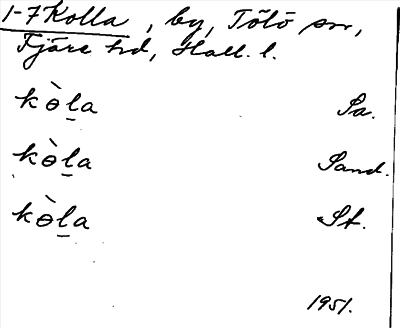 1-7 Kolla, by, Tölö sn,
Fjäre hd, Hall. l.
kɵ̀l̲a Sa.
kɵ̀l̲a Sand.
kɵ̀l̲a St.
1951.